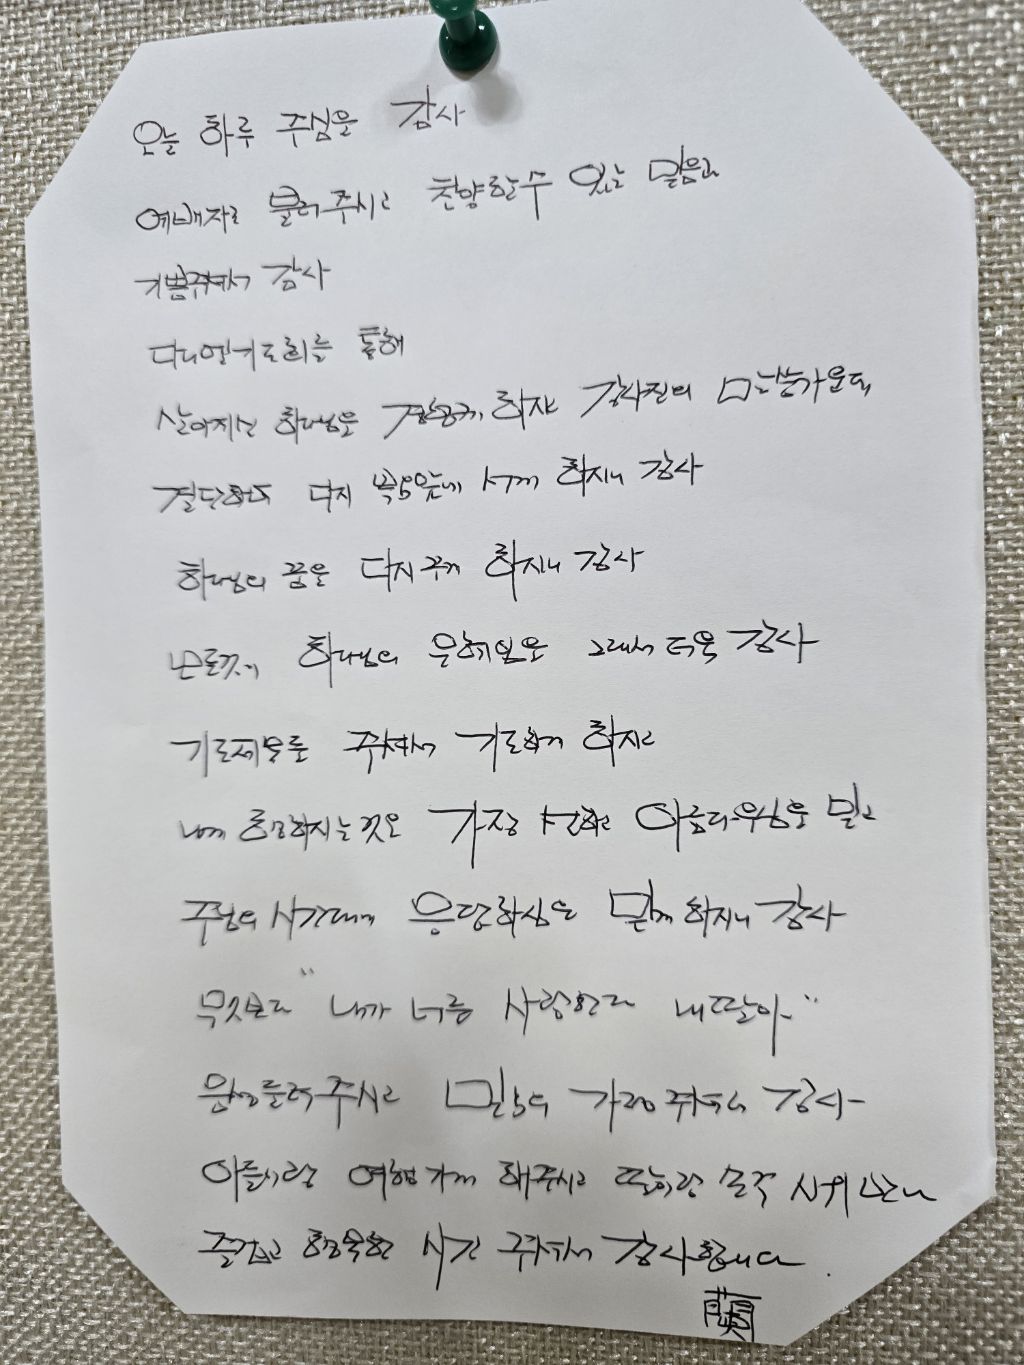 오늘 하루 주심을 감사
예배자로 불러주시고 찬양할 수 있는 믿음과
기쁨주셔서 감사
다니엘기도회를 통해
살아계신 하나님을 경험케 하시고 말씀가운데
결단하여 다시 복음앞에 서게 하시니 감사
하나님의 꿈을 다시 꾸게 하시니 감사
모든것이 하나님의 은혜임을 그래서 더욱 감사
기도제목을 주셔서 기도하게 하시고
내게 행하시는 것은 가장 선하고 아름다우심을 믿고
주님의 시간에 응답하심을 믿게 하시니 감사
무엇보다 "내가 너를 사랑한다 내 딸아~"
음성들려주시고 믿음의 가정 주셔서 감사
아들사랑 여행가게 해주시고 딸이랑 손주 사위 만나
즐겁고 행복한 시간 주셔서 감사합니다.
蘭